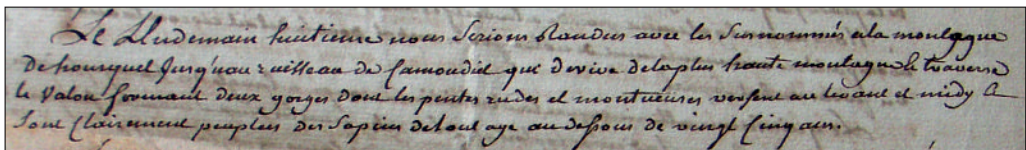 Le Lludemain huitieme nous Serions Randus avec les Surnommés a la montagne
De hourquet Jusqu'nau ruisseau de Camoudiel qui derive de la plus haute montagne le traverse
le Valon formant deux gorges dont les pentes rudes et montueuses versent au levant et midy
Sont Clairement peuplées des Sapins de tout age au dessous de vingt Cinq ans.